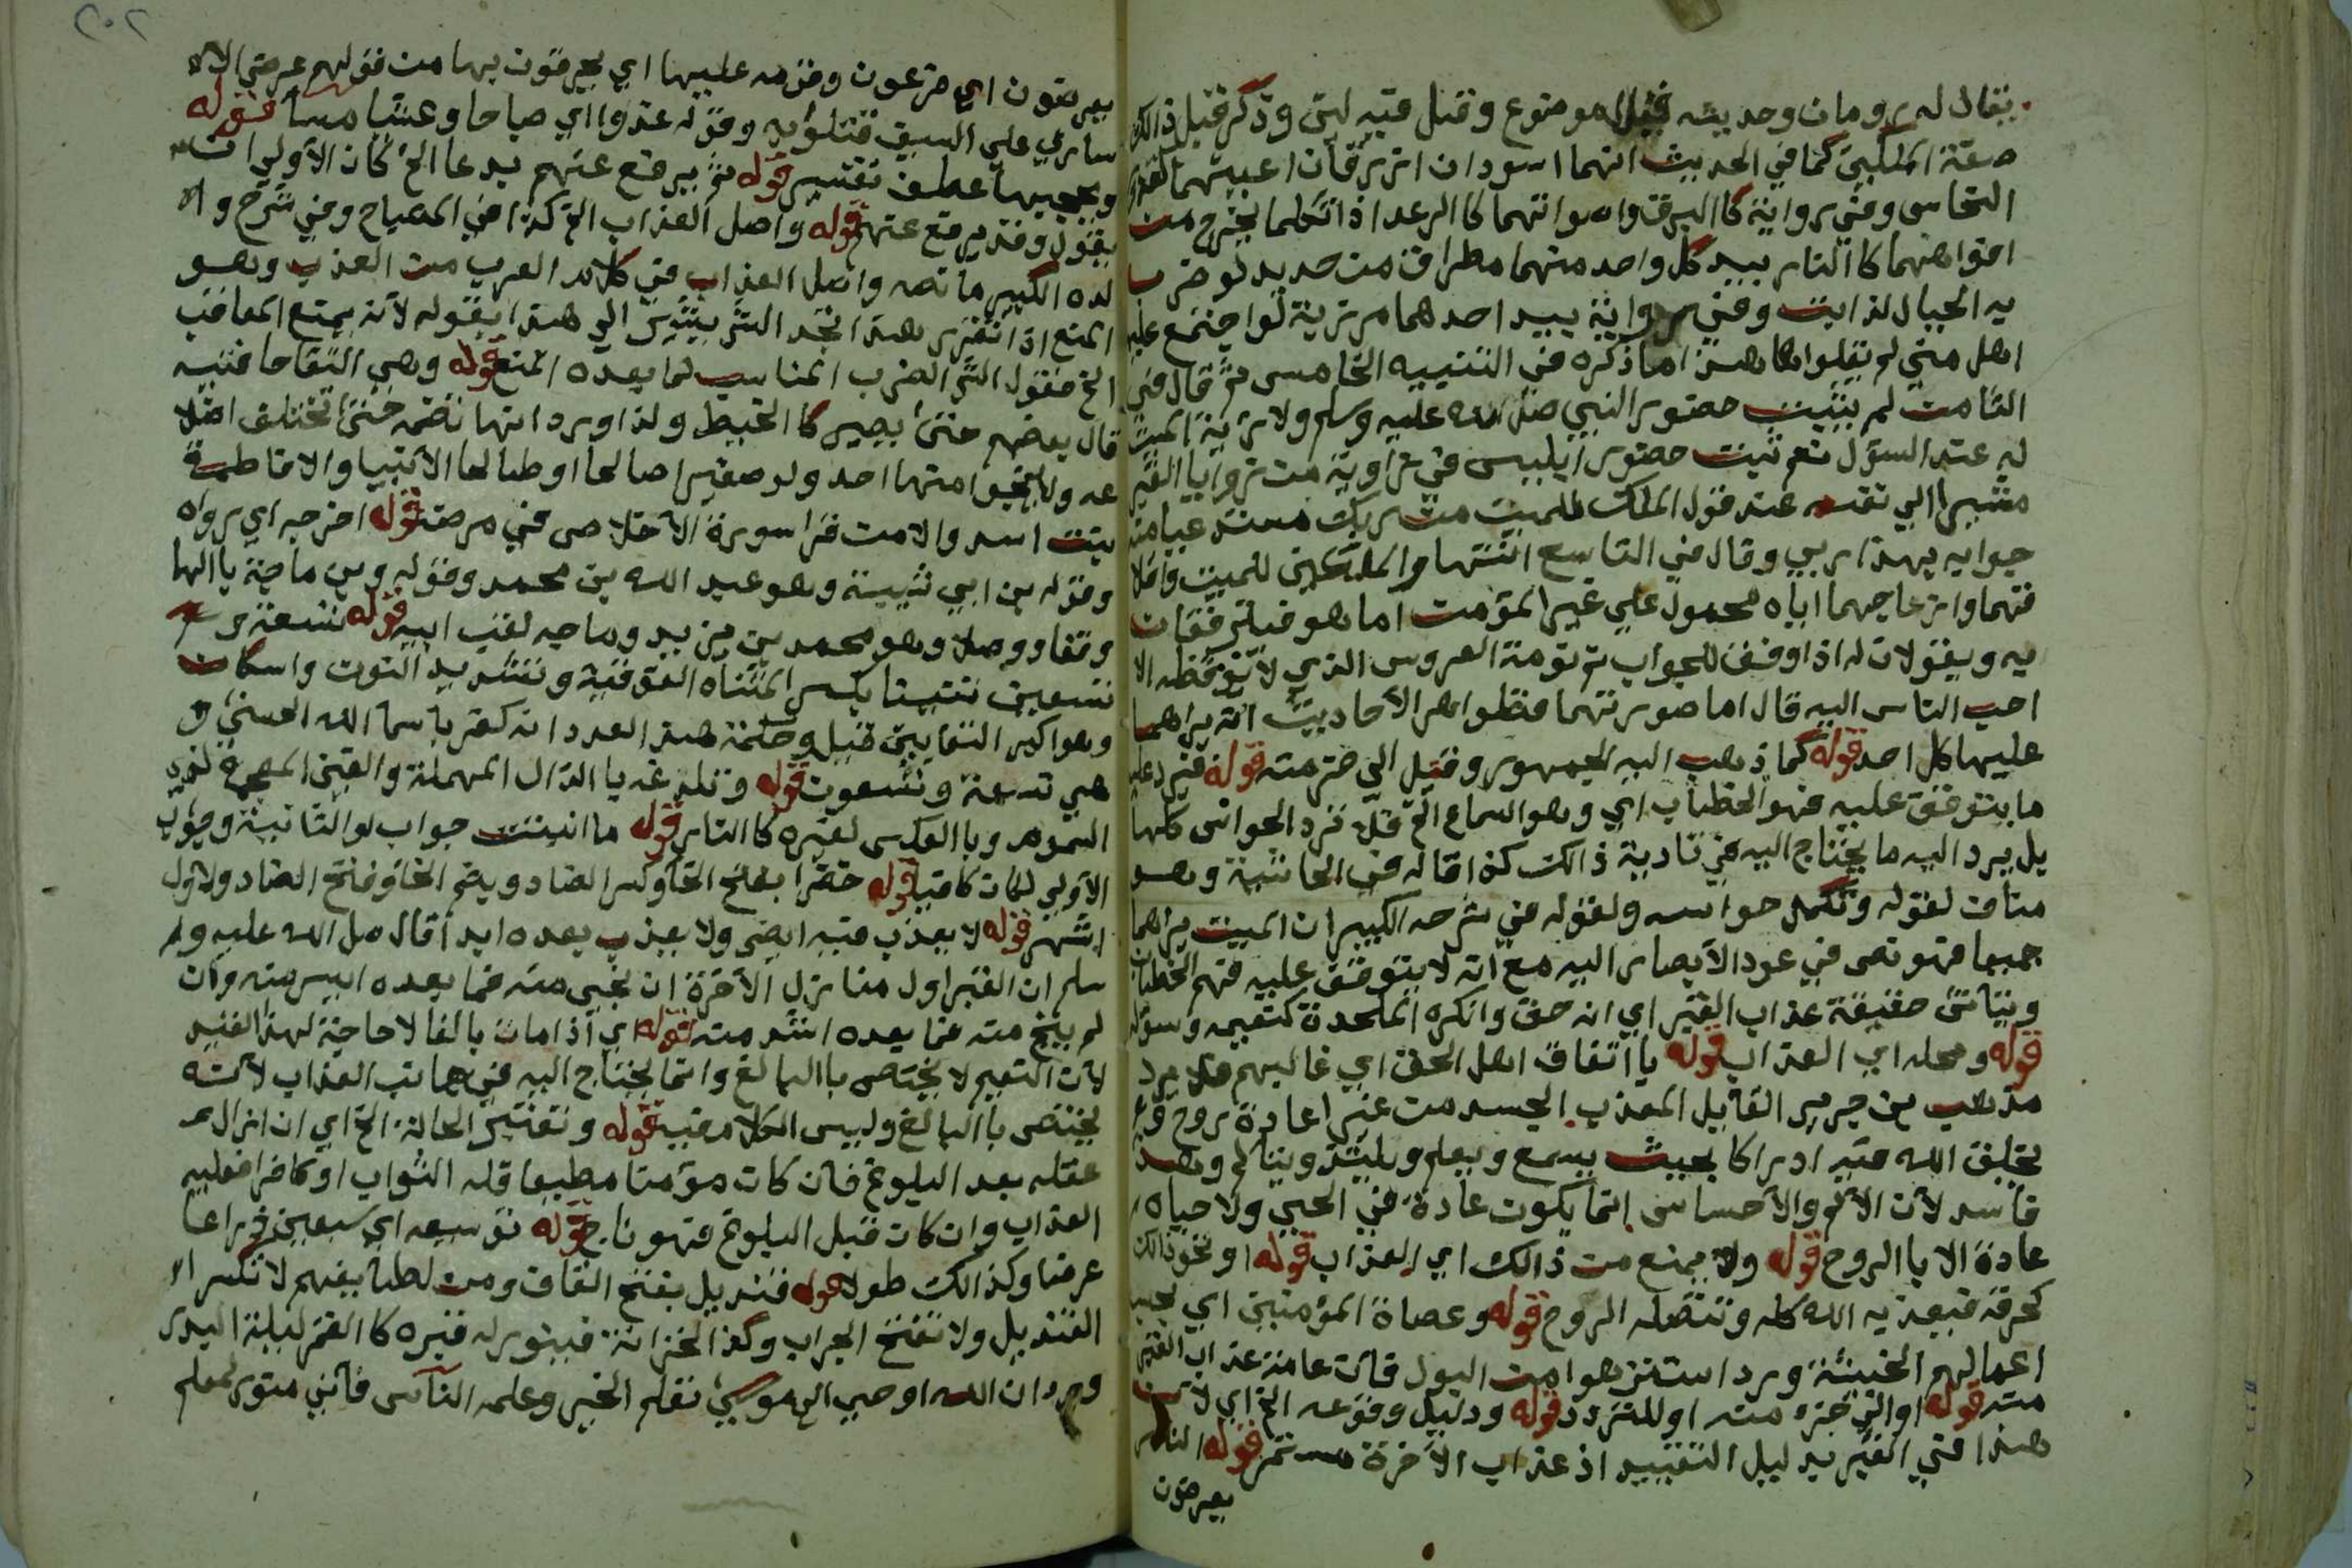 يقال له رومان وحديثه قيل الموضوع وقيل فيه لين وذكر قبل ذالك
صفة الملكين كما في الحديث انهما اسودان ازرقان اعينهما كقدور
النحاس وفي رواية كا البرق واصواتهما كا الرعد اذا تكلما يخرج من
افواههما كا النار بيد كل واحد منهما مطراق من حديد لو ضرب
به الجبال لذابت وفي رواية بيد احدهما مرزبة لو اجتمع عليها
اهل منى لم يقلوها هذا ما ذكره في التنبيه الخامس ثم قال في
الثامن لم يثبت حضور النبي صلى الله عليه وسلم ولا رؤية الميت
له عند السؤل نعم ثبت حضور ابليس في زاوية من زوايا القبر
مشيرا الي نفسه عند قول الملك للميت من ربك مستدعيا منه
جوابه بهذا ربي وقال في التاسع انتهار الملكين للميت واقلا
قهما وازعاجهما اياه محمول علي غير المؤمن اما هو فيترفقان
به ويقولان له اذا وفق للجواب نم نومة العروس الذي لا يوقظه الا
احب الناس اليه قال اما صورتهما فظواهر الاحاديث انه يراهما
عليها كل احد قوله كما ذهب اليه الجمهور وقيل الي جزء منه قوله فيرد عليه
ما يتوقف عليه فهم الخطاب اي وهو السماع الخ فلا ترد الحواس كلها
بل يرد اليه ما يحتاج اليه في تادية ذالك كذا قاله في الحاشية وهو
مناف لقوله وتكمل حواسه ولقوله في شرحه الكبير ان الميت يراهما
جميعا فهو نص في عود الابصار اليه مع انه لا يتوقف عليه فهم الخطاب
ويتاتى حقيقة عذاب القبر اي انه حق وانكره الملحدة كنعيمه وسؤله
قوله ومحله اي العذاب قوله با اتفاق اهل الحق اي غالبهم فلا يرد
مذهب بن جرير القائل المعذب الجسد من غير اعادة روح وع
يخلق الله فيه ادراكا بحيث يسمع ويعلم ويلتذ ويتالم وهذا
فاسد لان الالم والاحساس انما يكون عادة في الحي ولا حياه
عادة الا با الروح قوله ولا يمنع من ذالك اي العذاب قوله او نحو ذالك
كحرقه فيعذبه الله كله وتتصله الروح قوله وعصاة المؤمنين اي بحسب
اعمالهم الخبيثة ورد استنزهوا من البول فان عامة عذاب القبر
منه قوله او اللترجزه منه او للتردد قوله ودليل وقوعه الخ اي لان
هذا في القبر بدليل التقييد اذ عذاب الاخرة مستمر قوله النار
يعرضون
يعرضون اي فرعون وقومه عليها اي يحرقون بها من قولهم عرض الا
ساري علي السيف قتلوا به وقوله غدوا اي صباحا وعشيا مساء قوله
وعطف تفسير قوله ثم يرفع عنهم بدعا الخ كان الاولي ان
يقول وقد يرفع عنهم قوله واصل العذاب الخ كذا في المصباح وفي شرح وا
لده الكبير ما نصه واصل العذاب في كلام العرب من العذب وهو
المنع اذا تقرر هذا نجد الشر يشير الي هذا بقوله لانه يمنع المعاقب
الخ فقول الش الضرب المناسب لما بعده المنع قوله وهي التقا حافتيه
قال بعضهم حتى يصير كا الخيط ولذا ورد انها تضمه حتى تختلف اضلا
عه ولا ينجوا منها احد ولو صغيرا صالحا او طالحا الا الانبيا والا فاطمة
بنت اسد والا من قرا سورة الاخلاص في مرضه قوله اخرجه اي رواه
وقوله بن ابي شيبة وهو عبد الله بن محمد وقوله وبن ماجة با الها
وقفا ووصلا وهو محمد بن يزيد وماجه لقب ابيه قوله تسعة و
تسعين تنينا بكسر المثناه الفوقية وتشديد النون واسكان
وهو اكبر الثعابين قيل وحكمة هذا العدد انه كفر باسما الله الحسنى و
هي تسعة وتسعون قوله وتلدغه با الدال المهملة والغين المعجمة لذوي
السموم وبا العكس لغيره كا النار قوله ما انبتت جواب لو الثانية وجواب
الاولي لكان كافيا قوله خضرا بفتح الخا وكسر الضاد وبضم الخا وفتح الضاد والاول
اشهر قوله لا يعذب فيه ايضى ولا يعذب بعده ابدا قال صلى الله عليه و
سلم ان القبر اول منازل الاخرة ان نجى منه فما بعده ايسر منه وان
لم ينج منه فما بعده اشد منه قوله اي اذا مات بالغا لا حاجة لهذا القيد
لان النعيم لا يختص با البالغ وانما يحتاج اليه في جانب العذاب لانه
يختص با البالغ وليس الكلام فيه قوله وتعتبر الحالة الخ اي ان ازال
عقله بعد البلوغ فان كان مؤمنا مطيعا فله الثواب او كافرا فعليه
العذاب وان كان قبل البلوغ فهو ناج قوله توسيعه اي سبعين ذراعا
عرضا وكذالك طولا قوله قنديل بفتح القاف ومن لطا يفهم لا تكسر ال
القنديل ولا تفتح الجراب وكذا الخزانة فينور له قبره كا القمر ليلة البدر
ورد ان الله اوحي الى موسى تعلم الخير وعلمه الناس فاني منور لمعلم